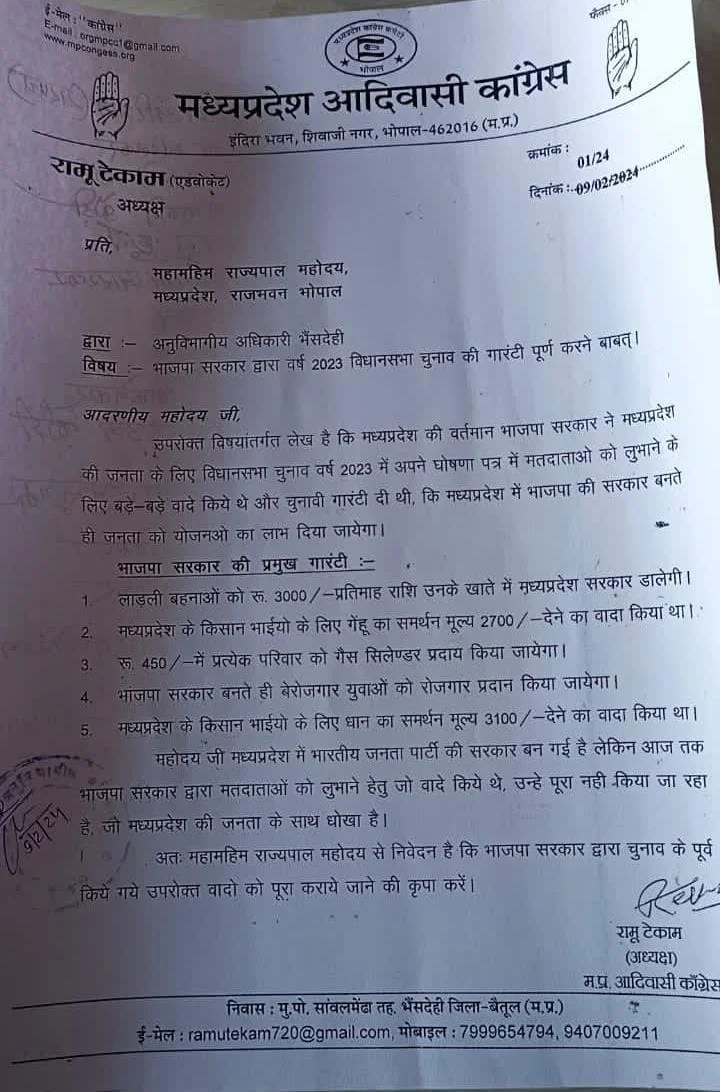 ई-मेल : "कांग्रेस"
E-mail : orgmpcc1@gmail.com
www.mpcongess.org
फैक्स -
मध्यप्रदेश कांग्रेस कमेटी
भोपाल
मध्यप्रदेश आदिवासी कांग्रेस
इंदिरा भवन, शिवाजी नगर, भोपाल-462016 (म.प्र.)
रामू टेकाम (एडवोकेट)
अध्यक्ष
क्रमांक : 01/24
दिनांक :..09/02/2024
प्रति,
महामहिम राज्यपाल महोदय,
मध्यप्रदेश, राजभवन भोपाल
द्वारा :– अनुविभागीय अधिकारी भैंसदेही
विषय :– भाजपा सरकार द्वारा वर्ष 2023 विधानसभा चुनाव की गारंटी पूर्ण करने बाबत्।
आदरणीय महोदय जी,
उपरोक्त विषयांतर्गत लेख है कि मध्यप्रदेश की वर्तमान भाजपा सरकार ने मध्यप्रदेश
की जनता के लिए विधानसभा चुनाव वर्ष 2023 में अपने घोषणा पत्र में मतदाताओ को लुभाने के
लिए बड़े–बड़े वादे किये थे और चुनावी गारंटी दी थी, कि मध्यप्रदेश में भाजपा की सरकार बनते
ही जनता को योजनओ का लाभ दिया जायेगा।
भाजपा सरकार की प्रमुख गारंटी :–
1. लाड़ली बहनाओं को रू. 3000/–प्रतिमाह राशि उनके खाते में मध्यप्रदेश सरकार डालेगी।
2. मध्यप्रदेश के किसान भाईयो के लिए गेंहू का समर्थन मूल्य 2700/–देने का वादा किया था।
3. रू. 450/–में प्रत्येक परिवार को गैस सिलेण्डर प्रदाय किया जायेगा।
4. भाजपा सरकार बनते ही बेरोजगार युवाओं को रोजगार प्रदान किया जायेगा।
5. मध्यप्रदेश के किसान भाईयो के लिए धान का समर्थन मूल्य 3100/–देने का वादा किया था।
महोदय जी मध्यप्रदेश में भारतीय जनता पार्टी की सरकार बन गई है लेकिन आज तक
भाजपा सरकार द्वारा मतदाताओं को लुभाने हेतु जो वादे किये थे, उन्हे पूरा नही किया जा रहा
है, जो मध्यप्रदेश की जनता के साथ धोखा है।
अतः महामहिम राज्यपाल महोदय से निवेदन है कि भाजपा सरकार द्वारा चुनाव के पूर्व
किये गये उपरोक्त वादो को पूरा कराये जाने की कृपा करें।
9/2/24
रामू टेकाम
(अध्यक्ष)
म.प्र. आदिवासी काँग्रेस
निवास : मु.पो. सांवलमेंढा तह. भैंसदेही जिला–बैतूल (म.प्र.)
ई-मेल : ramutekam720@gmail.com, मोबाइल : 7999654794, 9407009211